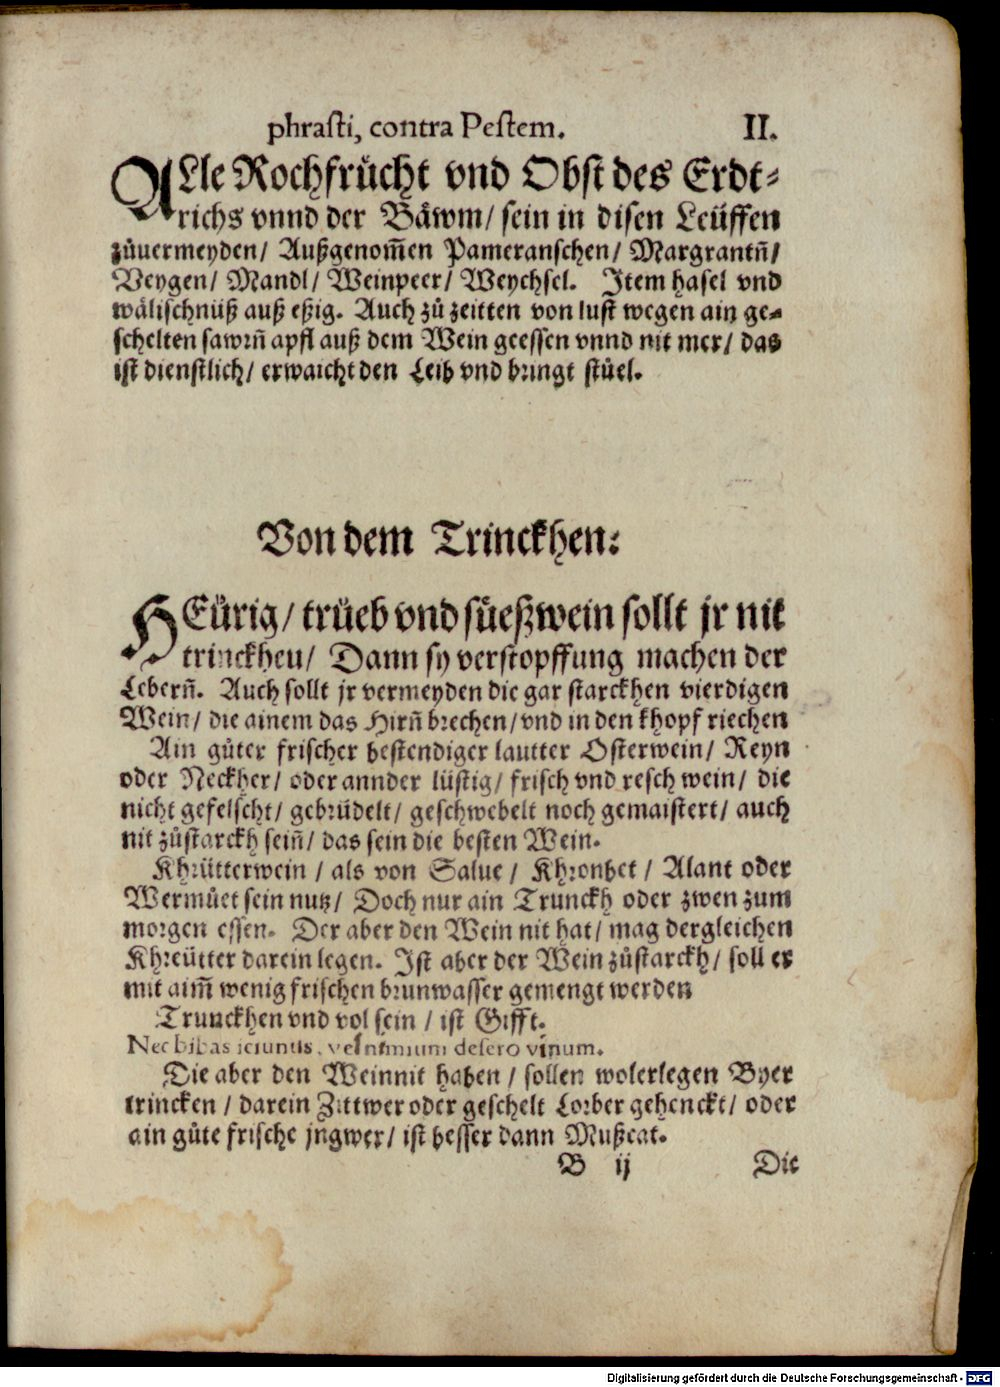 phrasti, contra Pestem. II.
ALle Rochfrücht vnd Obst des Erdt⸗
richs vnnd der Bäwm/ sein in disen Leüffen
zůuermeyden/ Außgenom̃en Pameranschen/ Margrantñ/
Veygen/ Mandl/ Weinpeer/ Weychsel. Item hasel vnd
wälischnüß auß eßig. Auch zů zeitten von lust wegen ain ge⸗
schelten sawrñ apfl auß dem Wein geessen vnnd nit mer/ das
ist dienstlich/ erwaicht den Leib vnd bringt stůel.
Von dem Trinckhen:
HEürig/ trüeb vnd süeßwein sollt jr nit
trinckheu/ Dann sy verstopffung machen der
Leberñ. Auch sollt jr vermeyden die gar starckhen vierdigen
Wein/ die ainem das Hirñ brechen/ vnd in den khopf riechen
Ain gůter frischer bestendiger lautter Osterwein/ Reyn
oder Neckher/ oder annder lüstig/ frisch vnd resch wein/ die
nicht gefelscht/ gebrüdelt/ geschwebelt noch gemaistert/ auch
nit zůstarckh seiñ/ das sein die besten Wein.
Khrütterwein / als von Salue / Khronbet / Alant oder
Wermůet sein nutz/ Doch nur ain Trunckh oder zwen zum
morgen essen. Der aber den Wein nit hat/ mag dergleichen
Khreütter darein legen. Ist aber der Wein zůstarckh/ soll er
mit aim̃ wenig frischen brunwasser gemengt werden
Trunckhen vnd vol sein / ist Gifft.
Nec bibas ieiunus, vel nimium desero vinum.
Die aber den Weinnit haben / sollen wolerlegen Byer
trincken / darein Zittwer oder geschelt Lorber gehenckt/ oder
ain gůte frische jngwer/ ist besser dann Mußcat.
B ij Die
Digitalisierung gefördert durch die Deutsche Forschungsgemeinschaft - DFG